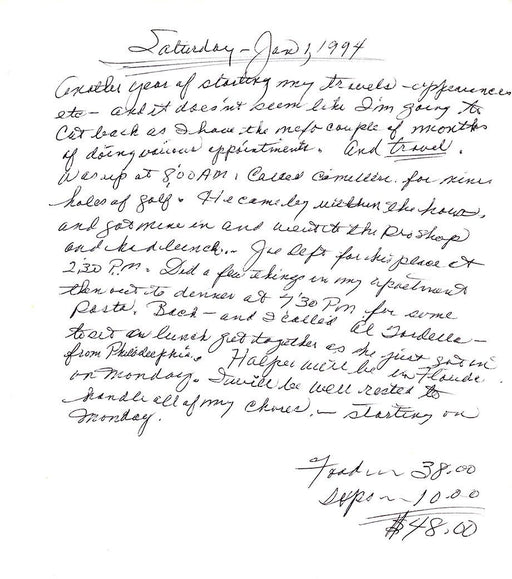 Saturday - Jan 1, 1994
Another year of starting my travels - appearances
etc - and it doesn't seem like I'm going to
cut back as I have the next couple of months
of doing various appointments. And travel.
Was up at 8:00 AM. Called for nine
holes of golf. He came by within the hour,
and got nine in and went to the Pro shop
and had lunch. - Joe left for his place at
2:30 P.M. Did a few things in my apartment
then out to dinner at 7:30 PM for some
Pasta. Back - and I called Al Tordella -
to set a lunch get together as he just got in
from Philadelphia. Halper will be in Florida
on Monday. I will be well rested to
handle all of my chores. - starting on
Monday.
Food - 38.00
10.00
$48.00